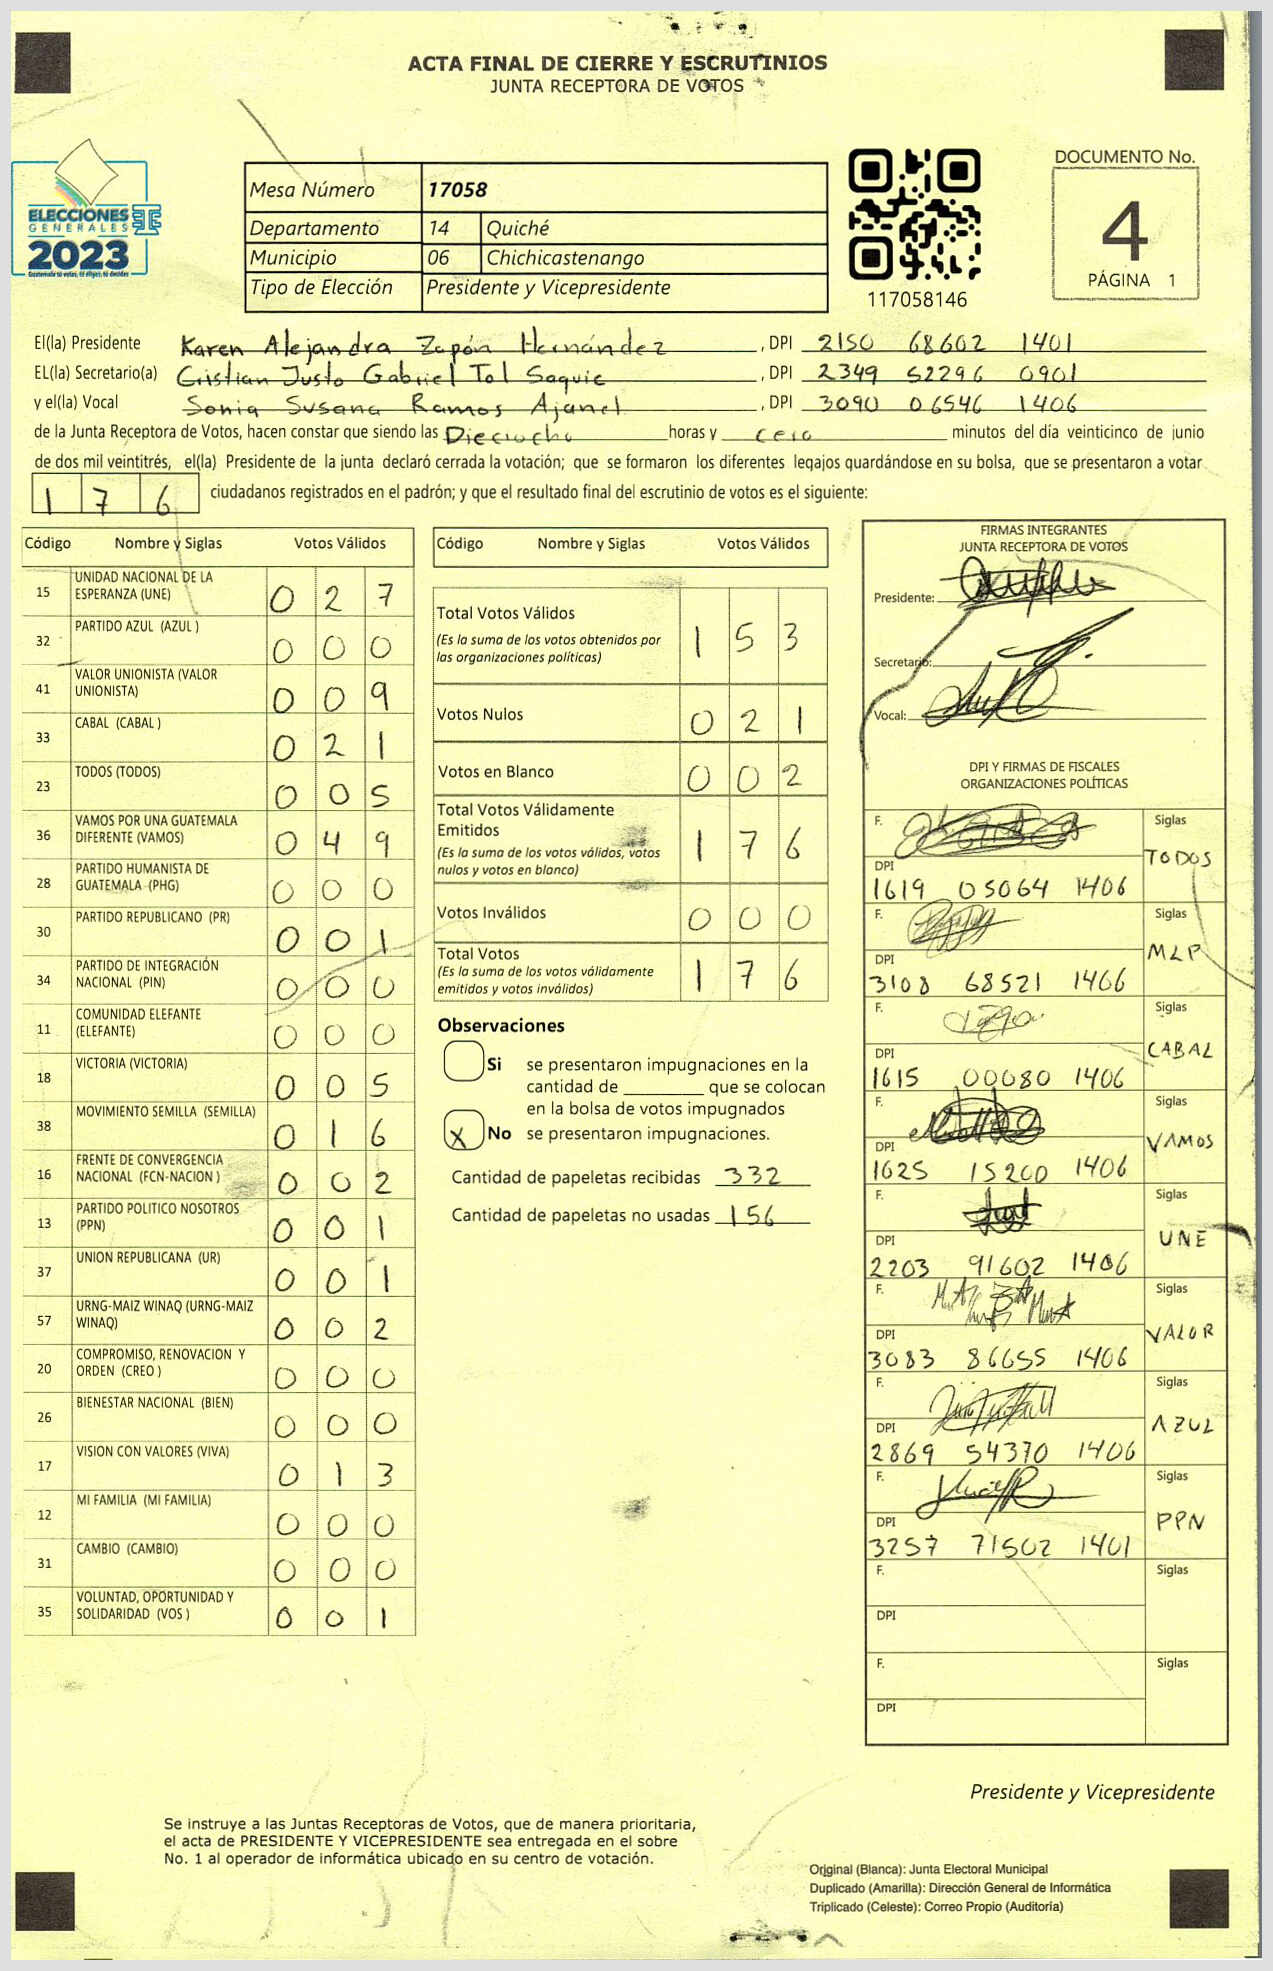 ACTA FINAL DE CIERRE Y ESCRUTINIOS
JUNTA RECEPTORA DE VOTOS
ELECCIONES
GENERALES
2023
Guatemala tú votas, tú eliges, tú decides
Mesa Número 17058
Departamento 14 Quiché
Municipio 06 Chichicastenango
Tipo de Elección Presidente y Vicepresidente
117058146
DOCUMENTO No.
4
PÁGINA 1
El(la) Presidente Karen Alejandra Zapón Hernández , DPI 2150 68602 1401
EL(la) Secretario(a) Cristian Justo Gabriel Tol Saquic , DPI 2349 52296 0901
y el(la) Vocal Sonia Susana Ramos Ajanel , DPI 3090 06546 1406
de la Junta Receptora de Votos, hacen constar que siendo las Dieciocho horas y cero minutos del día veinticinco de junio
de dos mil veintitrés, el(la) Presidente de la junta declaró cerrada la votación; que se formaron los diferentes legajos guardándose en su bolsa, que se presentaron a votar
176 ciudadanos registrados en el padrón; y que el resultado final del escrutinio de votos es el siguiente:
Código Nombre y Siglas Votos Válidos
15 UNIDAD NACIONAL DE LA ESPERANZA (UNE) 0 2 7
32 PARTIDO AZUL (AZUL ) 0 0 0
41 VALOR UNIONISTA (VALOR UNIONISTA) 0 0 9
33 CABAL (CABAL ) 0 2 1
23 TODOS (TODOS) 0 0 5
36 VAMOS POR UNA GUATEMALA DIFERENTE (VAMOS) 0 4 9
28 PARTIDO HUMANISTA DE GUATEMALA (PHG) 0 0 0
30 PARTIDO REPUBLICANO (PR) 0 0 1
34 PARTIDO DE INTEGRACIÓN NACIONAL (PIN) 0 0 0
11 COMUNIDAD ELEFANTE (ELEFANTE) 0 0 0
18 VICTORIA (VICTORIA) 0 0 5
38 MOVIMIENTO SEMILLA (SEMILLA) 0 1 6
16 FRENTE DE CONVERGENCIA NACIONAL (FCN-NACION ) 0 0 2
13 PARTIDO POLITICO NOSOTROS (PPN) 0 0 1
37 UNION REPUBLICANA (UR) 0 0 1
57 URNG-MAIZ WINAQ (URNG-MAIZ WINAQ) 0 0 2
20 COMPROMISO, RENOVACION Y ORDEN (CREO ) 0 0 0
26 BIENESTAR NACIONAL (BIEN) 0 0 0
17 VISION CON VALORES (VIVA) 0 1 3
12 MI FAMILIA (MI FAMILIA) 0 0 0
31 CAMBIO (CAMBIO) 0 0 0
35 VOLUNTAD, OPORTUNIDAD Y SOLIDARIDAD (VOS ) 0 0 1
Código Nombre y Siglas Votos Válidos
Total Votos Válidos 1 5 3
(Es la suma de los votos obtenidos por
las organizaciones políticas)
Votos Nulos 0 2 1
Votos en Blanco 0 0 2
Total Votos Válidamente
Emitidos 1 7 6
(Es la suma de los votos válidos, votos
nulos y votos en blanco)
Votos Inválidos 0 0 0
Total Votos 1 7 6
(Es la suma de los votos válidamente
emitidos y votos inválidos)
Observaciones
Si se presentaron impugnaciones en la
cantidad de ________ que se colocan
en la bolsa de votos impugnados
X No se presentaron impugnaciones.
Cantidad de papeletas recibidas 332
Cantidad de papeletas no usadas 156
FIRMAS INTEGRANTES
JUNTA RECEPTORA DE VOTOS
Presidente:
Secretario:
Vocal:
DPI Y FIRMAS DE FISCALES
ORGANIZACIONES POLÍTICAS
F. Siglas TODOS
DPI
1619 05064 1406
F. Siglas MLP
DPI
3108 68521 1406
F. Siglas CABAL
DPI
1615 00080 1406
F. Siglas VAMOS
DPI
1625 15200 1406
F. Siglas UNE
DPI
2203 91602 1406
F. Siglas VALOR
DPI
3083 86655 1406
F. Siglas AZUL
DPI
2869 54370 1406
F. Siglas PPN
DPI
3257 71502 1401
F. Siglas
DPI
F. Siglas
DPI
Presidente y Vicepresidente
Se instruye a las Juntas Receptoras de Votos, que de manera prioritaria,
el acta de PRESIDENTE Y VICEPRESIDENTE sea entregada en el sobre
No. 1 al operador de informática ubicado en su centro de votación.
Original (Blanca): Junta Electoral Municipal
Duplicado (Amarilla): Dirección General de Informática
Triplicado (Celeste): Correo Propio (Auditoría)